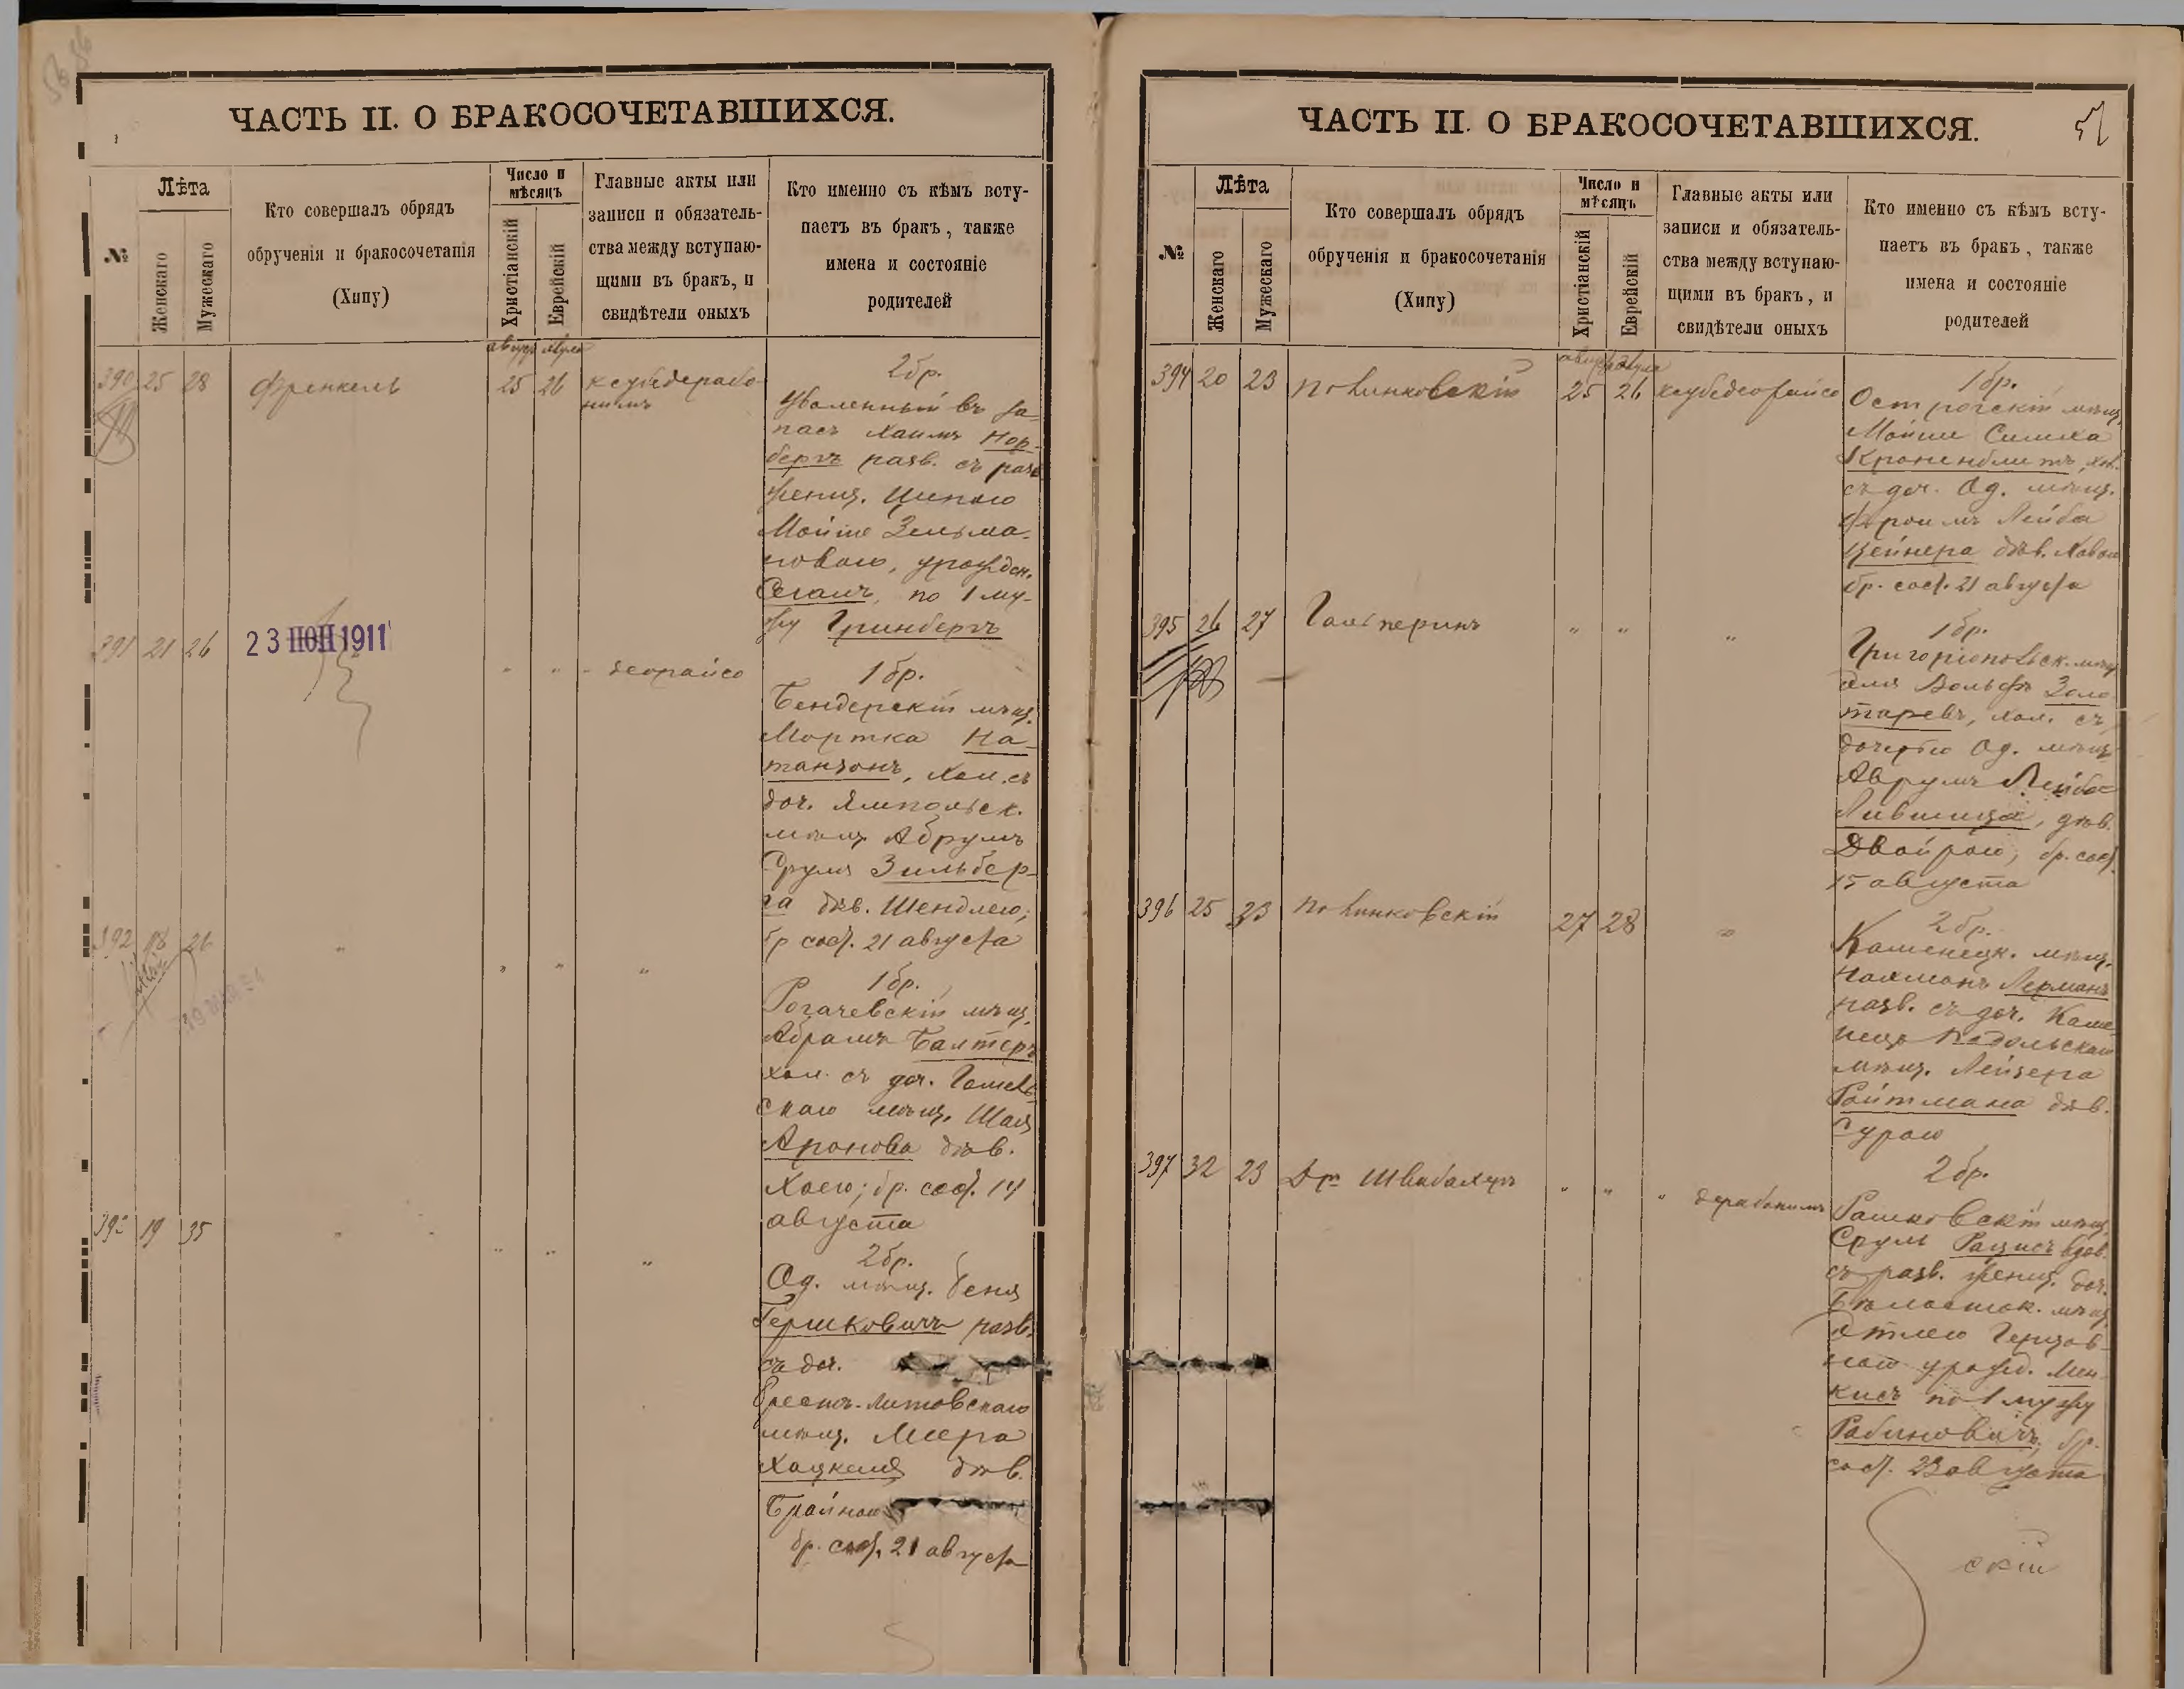 ЧАСТЬ II. О БРАКОСОЧЕТАВШИХСЯ.
№
Лѣта
Женскаго
Мужескаго
Кто совершалъ обрядъ
обрученія и бракосочетанія
(Хипу)
Число и
мѣсяцъ
Христіанскій
Еврейскій
Главные акты или
записи и обязатель-
ства между вступаю-
щими въ бракъ, и
свидѣтели оныхъ
Кто именно съ кѣмъ всту-
паетъ въ бракъ, также
имена и состояніе
родителей
390 25 28 Френкель 25 26
2 бр.
Уволенный въ за-
пасъ Хаимъ Нор-
бергъ разв. съ разв.
женщ. Ципою
Мойше Зельма-
новою, урожден.
Сегалъ, по 1 му-
жу Гринбергъ
391 21 26 " " - деорайсо
23 ІЮН 1911
1 бр.
Бендерскій мѣщ.
Мортка На-
танзонъ, хол. съ
доч. Ямпольск.
мѣщ. Абрумъ
Срула Зильбер-
га дѣв. Шендлею;
бр. сост. 21 августа
392 18 26 " " " "
1 бр.
Рогачевскій мѣщ.
Абрамъ Балтеръ
хол. съ доч. Гомель-
скаго мѣщ. Шая
Аронова дѣв.
Хаею; бр. сост. 14
августа
393 19 35 " " " "
2 бр.
Од. мѣщ. Беня
Гершковичъ разв.
съ доч.
Брестъ-Литовскаго
мѣщ. Меера
Хацкеля дѣв.
Брайною
бр. сост. 21 августа
ЧАСТЬ II. О БРАКОСОЧЕТАВШИХСЯ.
№
Лѣта
Женскаго
Мужескаго
Кто совершалъ обрядъ
обрученія и бракосочетанія
(Хипу)
Число и
мѣсяцъ
Христіанскій
Еврейскій
Главные акты или
записи и обязатель-
ства между вступаю-
щими въ бракъ, и
свидѣтели оныхъ
Кто именно съ кѣмъ всту-
паетъ въ бракъ, также
имена и состояніе
родителей
394 20 23 Полинковскій 25 26 ксубдеорайсо
1 бр.
Острогскій мѣщ.
Мойше Симха
Кроненблитъ, хол.
съ доч. Од. мѣщ.
Фроимъ Лейба
Цейнера дѣв. Хавою
бр. сост. 21 августа
395 26 27 Гальперинъ " " "
1 бр.
Григоріопольск. мѣщ.
Эля Вольфъ Золо-
таревъ, хол. съ
дочерью Од. мѣщ.
Аврумъ Лейба
Лившица, дѣв.
Двойрою, бр. сост.
15 августа
396 25 33 Полинковскій 27 28 "
2 бр.
Каменецк. мѣщ.
Нахманъ Лерманъ
разв. съ доч. Каме-
нецъ Подольскаго
мѣщ. Лейзера
Ройтмана дѣв.
Сурою
397 32 23 Др. Швабахеръ " " " дерабонимъ
2 бр.
Рашковскій мѣщ.
Сруль Рацисъ вдов.
съ разв. женщ. доч.
Бѣлосток. мѣщ.
Этлею Герцов-
ною урожд. Мин-
кисъ по 1 мужу
Рабиновичъ, бр.
сост. 23 августа
скій